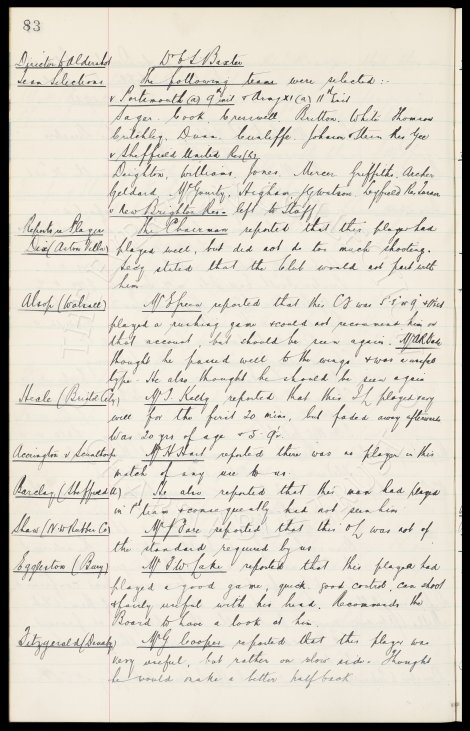 83
Director to Aldershot Mr E S Baxter
Team Selections The following teams were selected :-
v Portsmouth (a) 9th inst v Army XI (a) 11th inst
Sagar. Cook. Cresswell. Britton. White Thomson
Critchley. Dunn. Cunliffe. Johnson & Stein Res Gee
v Sheffield United Res (h)
Deighton, Williams, Jones. Mercer. Griffiths. Archer
Geldard. McGourty. Higham.
v New Brighton Res - left to Staff
Reports re Players The Chairman reported that this player had
Dix (Aston Villa) played well, but did not do too much shooting.
Secy stated that the Club would not part with
him
Alsop (Walsall) reported that this CF was
played a rushing game & could not recommend him on
that account, but should be seen again.
thought he passed well to the wings & was a useful
type. He also thought he should be seen again
Heale (Bristol City) Mr J. Kelly reported that this I/L played very
well for the first 20 mins, but faded away afterwards
Was 20 yrs of age & 5-9½.
Accrington v Scunthorpe Mr H Hart reported there was no player in this
match of any use to us.
Barclay (Sheffield U) He also reported that this man had played
in 1st team & consequently had not seen him
Shaw (N W Rubber Co) Mr J Pare reported that this O/L was not of
the standard required by us
Eggleston (Bury) reported that this player had
played a good game, quick, good control, can shoot
& fairly useful with his head. Recommends the
Board to have a look at him.
Fitzgerald Mr G Cooper reported that this player was
very useful, but rather on slow side. Thought
he would make a better half back